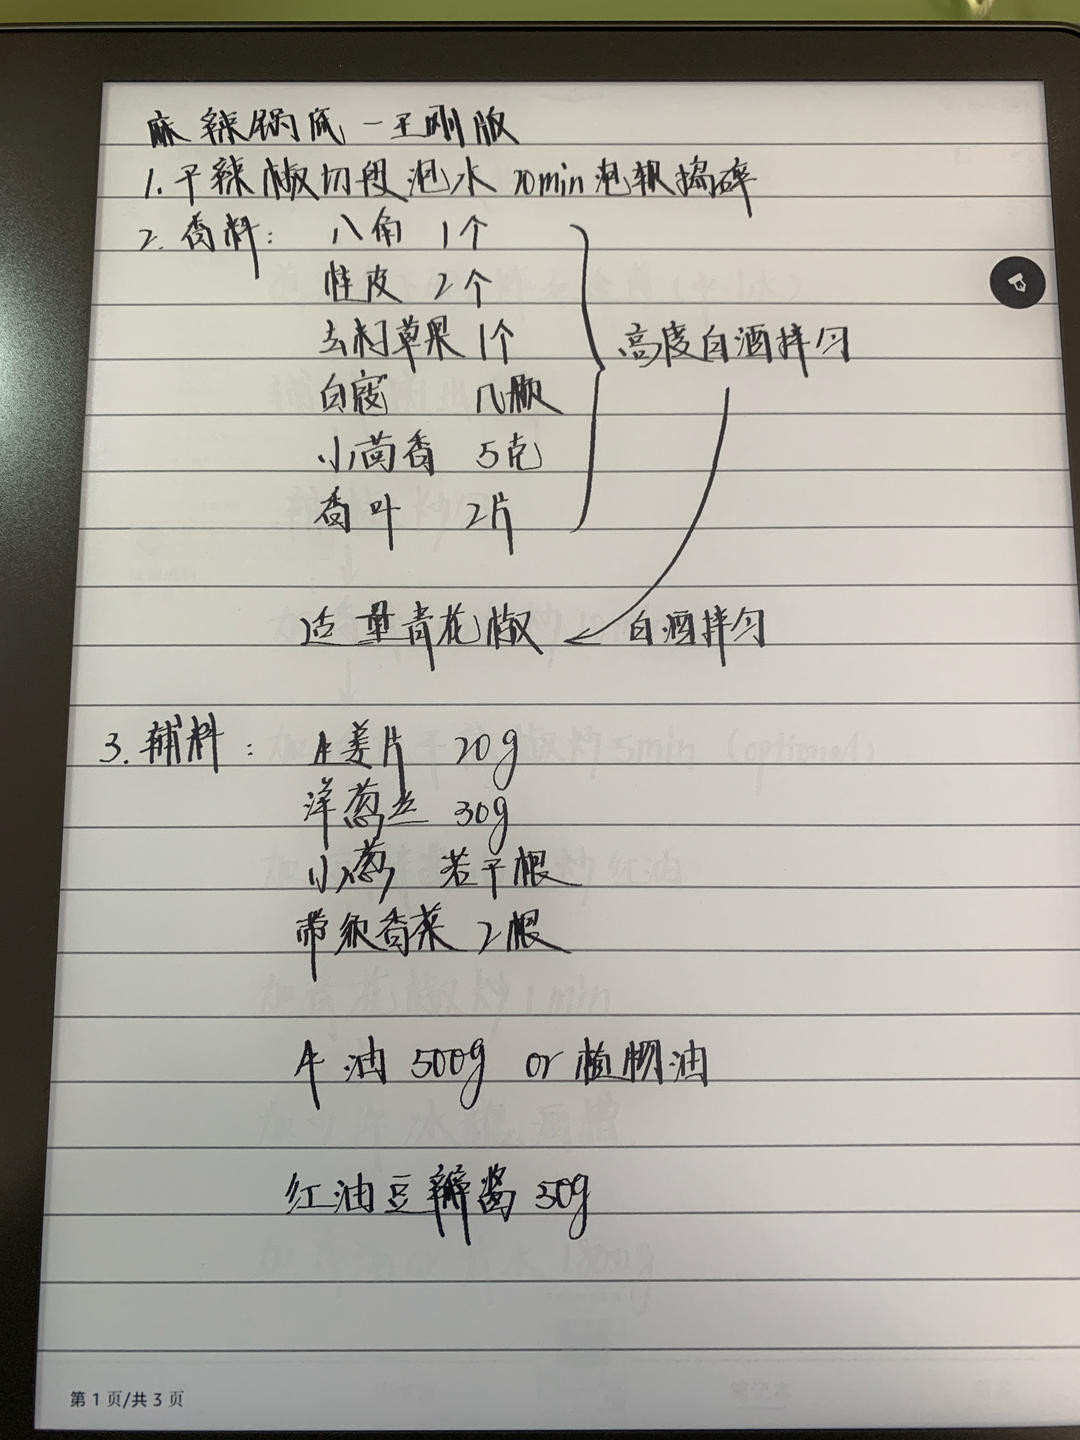 麻辣锅底-王刚版
1.干辣椒切段泡水 20min泡软捣碎
2.香料: 八角 1个
桂皮 2个
去籽草果 1个
高度白酒拌匀
白蔻 几颗
小茴香 5克
香叶 2片
适量青花椒
白酒拌匀
3.辅料: 生姜片 20g
洋葱丝 30g
小葱 若干根
带须香菜 2根
牛油 500g or 植物油
红油豆瓣酱 50g
第 1 页/共 3 页